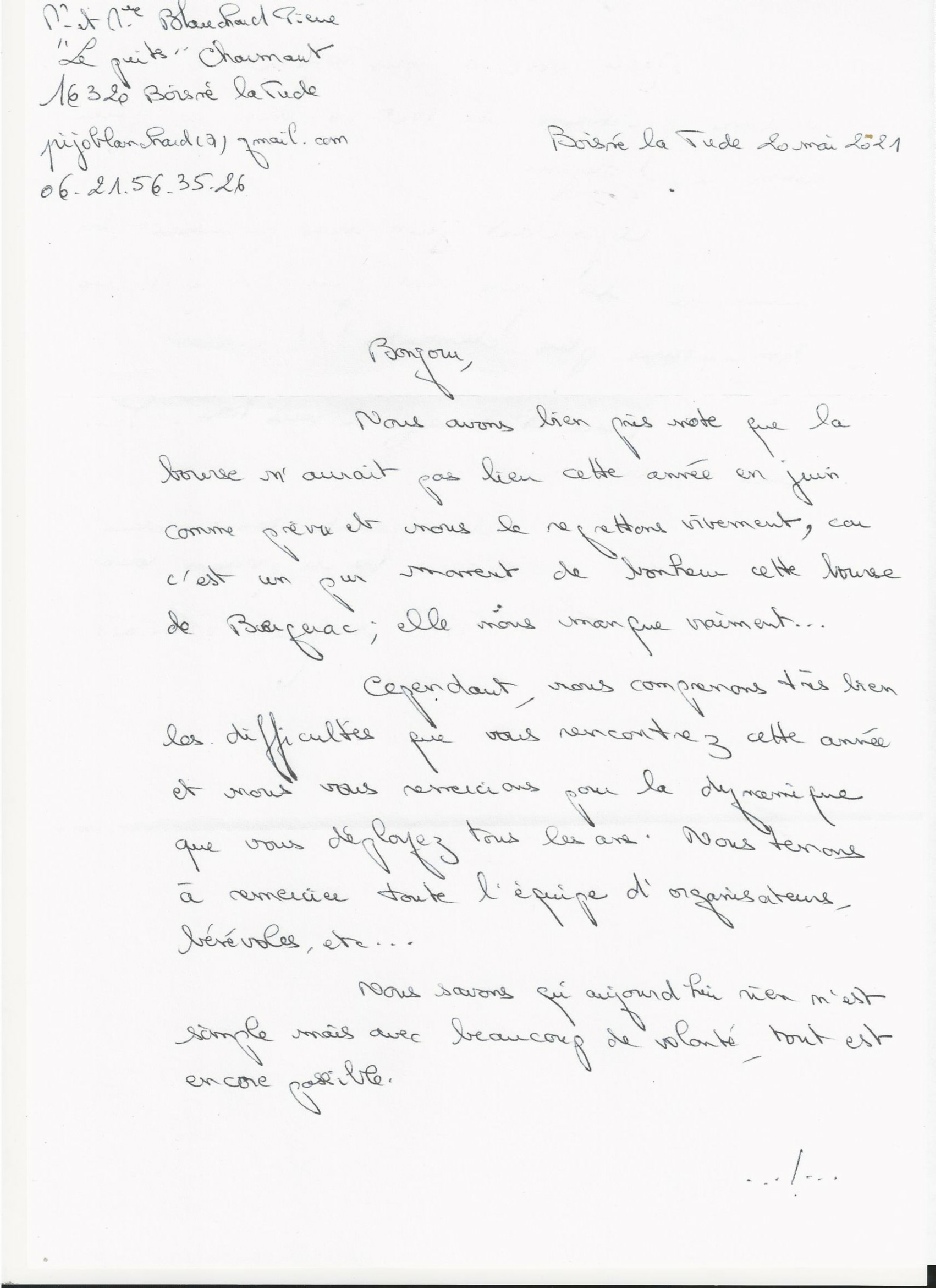 Mr et Mme Blanchard Pierre
"Le puits" Chaumont
16320 Boisné la Tude
pijoblanchard(a)gmail.com
06.21.56.35.26
Boisné la Tude 20 mai 2021
Bonjour,
Nous avons bien pris note que la
bourse n'aurait pas lieu cette année en juin
comme prévu et nous le regrettons vivement, car
c'est un pur moment de bonheur cette bourse
de Bergerac ; elle nous manque vraiment...
Cependant, nous comprenons très bien
les difficultés que vous rencontrez cette année
et nous vous remercions pour la dynamique
que vous déployez tous les ans. Nous tenons
à remercier toute l'équipe d'organisateurs,
bénévoles, etc...
Nous savons qu'aujourd'hui rien n'est
simple mais avec beaucoup de volonté, tout est
encore possible.
.../...